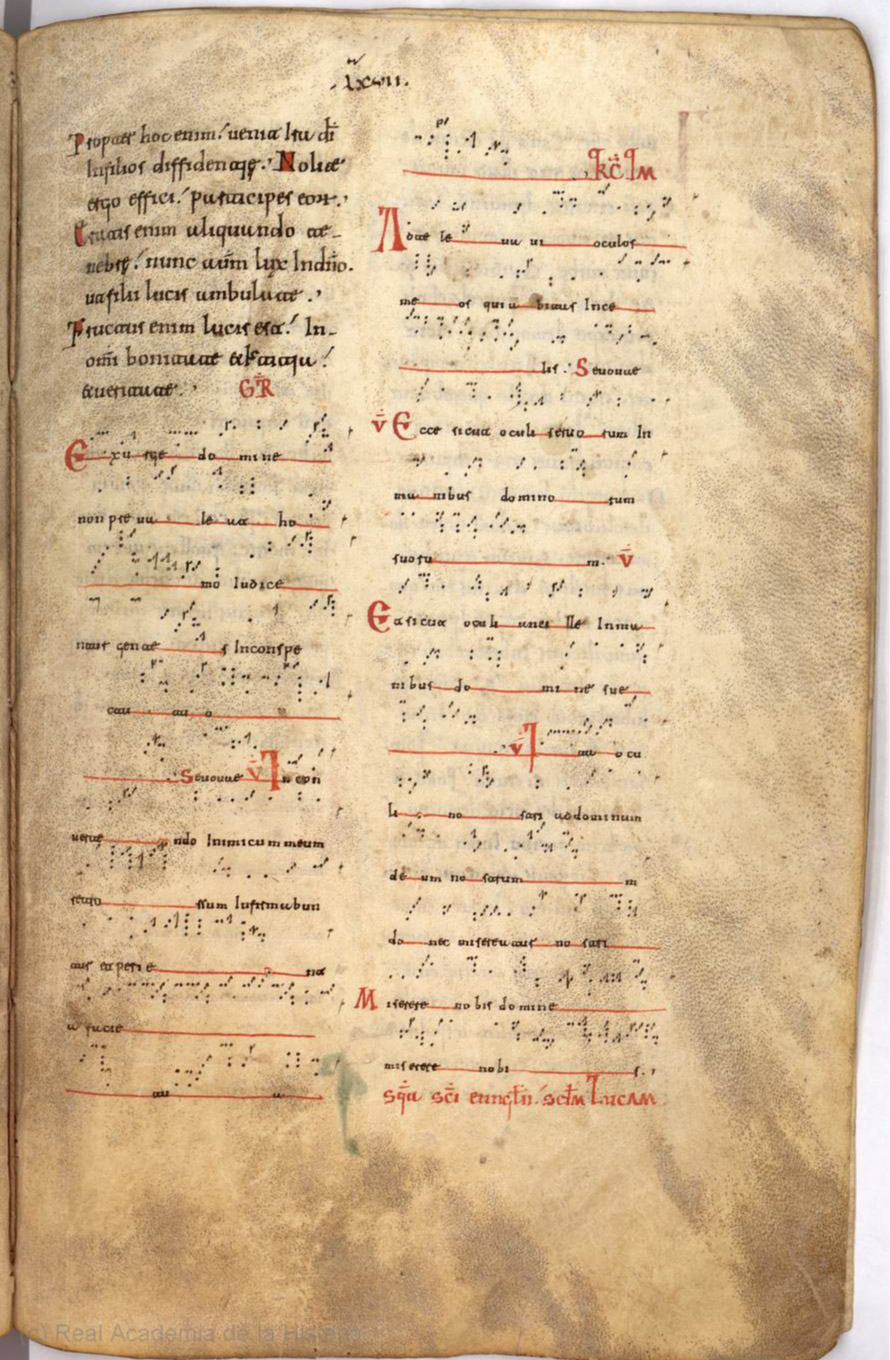 lxvii.
Propter hoc enim! uenit Ira di
In filios diffidentię. Nolite
ergo effici! participes eor.
Eratis enim aliquando te-
nebrę! nunc autm lux In dno.
ut filii lucis ambulate.
Fructus enim lucis est! In
omi bonitate et iustitia!
et ueritate. GR
Exurge domine
non pre ua le at ho
mo Iudice
ntur gentes In conspe
ctu tu o
Seuouae v In con
uerte ndo Inimicum meum
retro rsum Infirmabun
tur et perie nt
a facie
tu a
TRC IM
Ad te le ua ui oculos
me os qui habitas In ce
lis. Seuouae
v Ecce sicut oculi seruo rum In
ma nibus domino rum
suoru m. v
Et sicut oculi ancille In ma
nibus do mi ne sue
v Ita ocu
li no stri ad dominum
de um no strum m
do nec misereatur no stri
Miserere nobis domine
miserere nobi s.
sqa sci euuglii. scdm Lucam
(c) Real Academia de la Historia